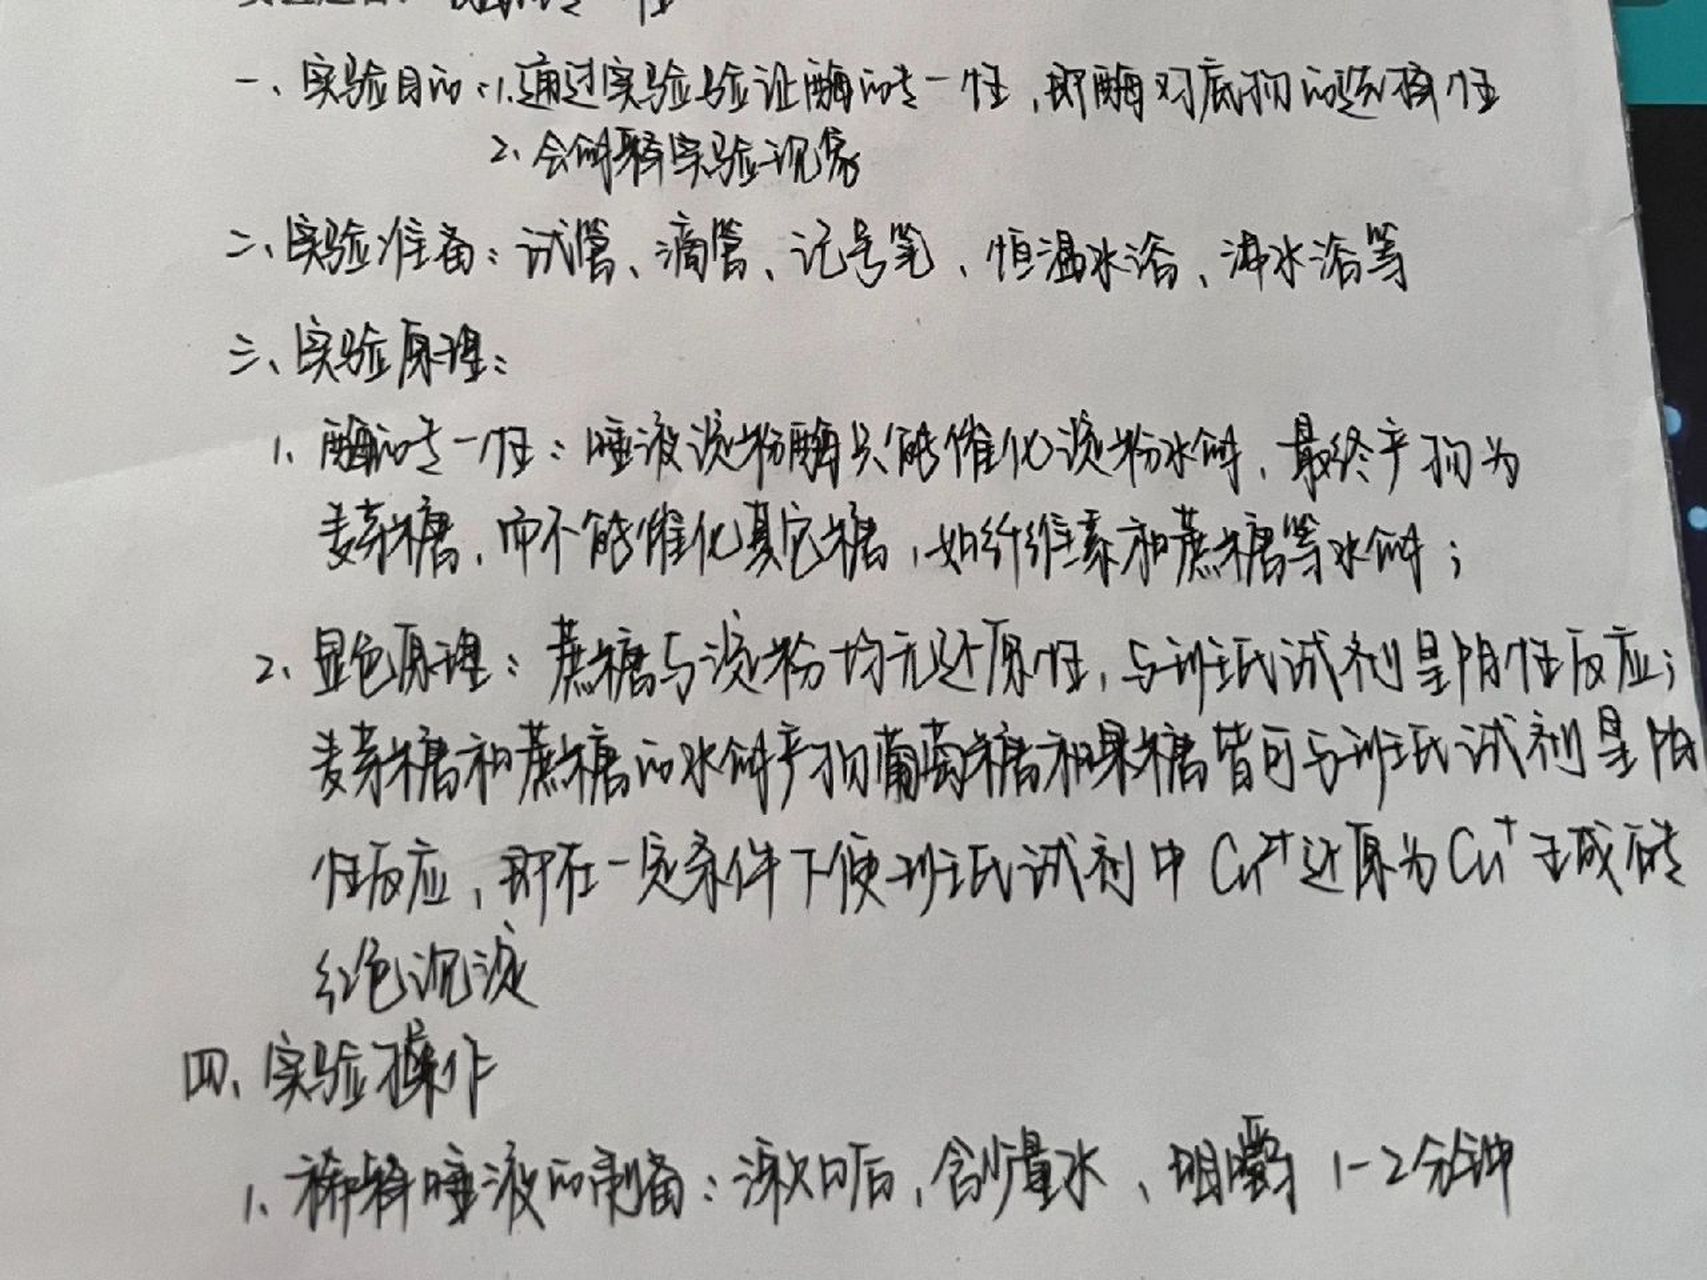 一、实验目的：1.通过实验验证酶的专一性，即酶对底物的选择性
2、会解释实验现象
二、实验准备：试管、滴管、记号笔、恒温水浴、沸水浴等
三、实验原理：
1、酶的专一性：唾液淀粉酶只能催化淀粉水解，最终产物为
麦芽糖，而不能催化其它糖，如纤维素和蔗糖等水解；
2、显色原理：蔗糖与淀粉均无还原性，与班氏试剂呈阴性反应；
麦芽糖和蔗糖的水解产物葡萄糖和果糖皆可与班氏试剂呈阳
性反应，即在一定条件下使班氏试剂中Cu²⁺还原为Cu⁺生成砖
红色沉淀
四、实验操作
1、稀释唾液的制备：漱口后，含少量水、咀嚼1-2分钟